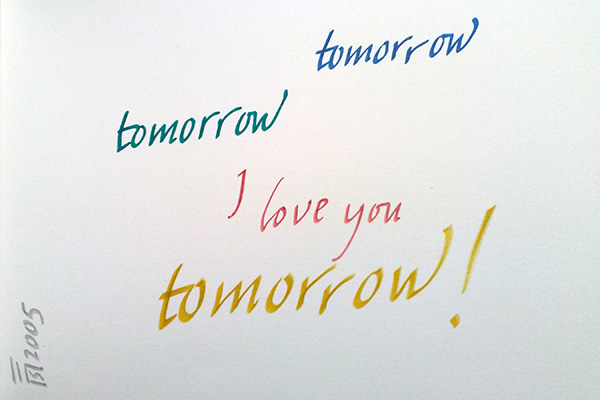 tomorrow
tomorrow
I love you
tomorrow!
2005